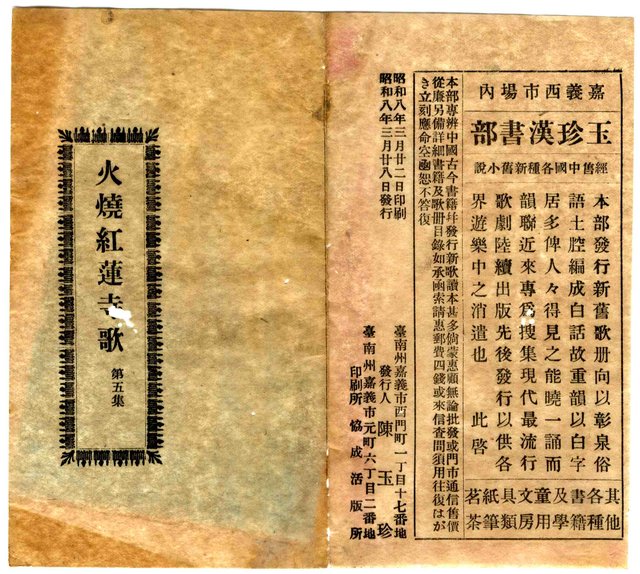 嘉義西市場內
玉珍漢書部
經售中國各種新舊小說
本部發行新舊歌册向以彰泉俗
語土腔編成白話故重韻以白字
居多俾人々得見之能曉一誦而
韻聯近來專爲搜集現代最流行
歌劇陸續出版先後發行以供各
界遊樂中之消遣也 此啓
其他各種書籍及學童用文房具類紙筆茗茶
本部專辨中國古今書籍幷發行新歌讀本甚多倘蒙惠顧無論批發或門市通信售價
從廉另備詳細書籍及歌册目錄如承函索請惠郵費四錢或來信查問須用往復はが
き立刻應命空函恕不答復
昭和八年三月廿二日印刷
昭和八年三月廿八日發行
臺南州嘉義市西門町一丁目十七番地
發行人 陳玉珍
臺南州嘉義市元町六丁目二番地
印刷所 協成活版所
火燒紅蓮寺歌 第五集